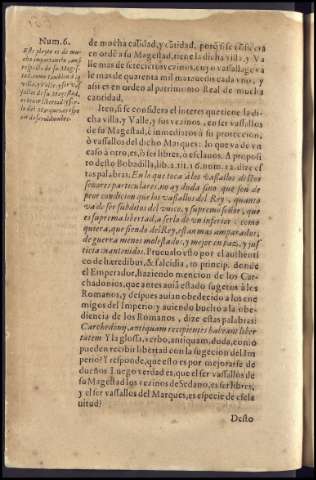 Num.6.
Este pleyto es de mu-
cha importancia, anſi
reſpecto de ſu Mageſ-
tad, como tambiẽ de la
villa, y Valle, y ſer Vaſ-
ſallos de ſu Mageſtad,
es tener libertad, y ſer-
lo del marques es eſpe-
cie de ſeruidumbre.
de mucha calidad, y cãtidad, porq̃ ſi ſe cõſidera
en ordẽ a ſu Mageſtad, tiene la dicha villa, y Va
lle mas de ſetecientos vezinos, cuyo vaſſallage vã
le mas de quarenta mil marauedis cada vno, y
aſsi es en orden al patrimonio Real de mucha
cantidad.
Item, ſi ſe conſidera el interes que tiene la di-
cha villa, y Valle, y ſus vezinos, en ſer vaſſallos
de ſu Mageſtad, è inmediatos à ſu proteccion,
ò vaſſallos del dicho Marques: lo que va de vn
caſo à otro, es, ò ſer libres, o eſclauos. A propoſi
to deſto Bobadilla, lib. 2. tit. 16. num. 12. dize eſ
tas palabras: En lo que toca à los vaſſallos de los
ſeñores particulares, no ay duda ſino que ſon de
peor condicion que los vaſſallos del Rey, quanto
va de ſer ſubditos del vnico, y ſupremo ſeñor, que
es ſuprema libertad, a ſerlo de vn inferior: como
quiera, que ſiendo del Rey, eſtan mas amparados,
de guerra menos moleſtados, y mejor en paz, y juſ
ticia mantenidos. Prueualo eſto por el authenti
co de hæredibus, & falcidia, in princip. donde
el Emperador, haziendo mencion de los Car-
chadonios, que antes auiã eſtado ſugetos à los
Romanos, y deſpues auian obedecido à los ene
migos del Imperio, y auiendo buelto a la obe-
diencia de los Romanos, dize eſtas palabras:
Carchedonij, antiquam recipientes habeant liber
tatem. Y la gloſſa, verbo, antiquam, duda, como
pueden recibir libertad con la ſugecion del Im
perio? Y reſponde, que eſto es por mejorarſe de
dueños. Luego verdad es, que el ſer vaſſallos de
ſu Mageſtad los vezinos de Sedano, es ſer libres,
y el ſer vaſſallos del Marques, es eſpecie de eſcla
uitud?
Deſto